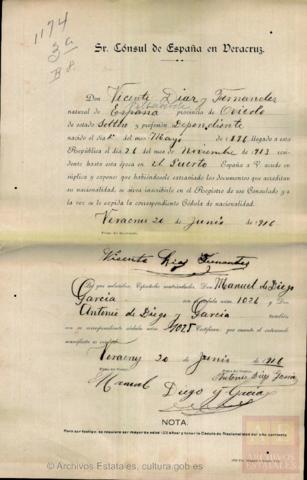 1174
3a
B 8
Sr. Cónsul de España en Veracruz.
Don Vicente Diaz y Fernandez
natural de España provincia de Oviedo
de estado Soltero y profesión Dependiente
nacido el día 5 del mes Mayo de 1886 llegado a esta
República el día 26 del mes de Noviembre de 1913
residente hasta esta época en el Puerto España a V. acude en
súplica y expone: que habiéndosele extraviado los documentos que acreditan
su nacionalidad, se sirva inscribirle en el Registro de ese Consulado y a
la vez se le expida la correspondiente Cédula de nacionalidad.
Veracruz 20 de Junio de 1916
Firma del Interesado,
Vicente Diaz Fernandez
Los que subscriben, Españoles matriculados: Don Manuel de Diego
Garcia con cédula núm. 1026 y Don
Antonio de Diego y Garcia también
con su correspondiente cédula núm. 1025 Certifican: que cuanto el interesado
manifiesta es verdad.
Veracruz 20 de Junio de 1916
Firma del Testigo,
Firma del Testigo,
Antonio Diego Garcia
Manuel Diego y Garcia
NOTA:
Para ser testigo, se requiere ser mayor de edad (23 años) y tener la Cédula de Nacionalidad del año corriente
ARCHIVOS
ESTATALES
© Archivos Estatales, cultura.gob.es